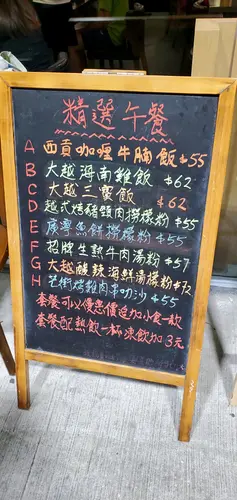 精選午餐
A 西貢咖喱牛腩飯 $55
B 大越海南雞飯 $62
C 大越三寶飯 $62
D 越式烤豬頸肉撈檬粉 $55
E 魚餅撈檬粉 $55
F 招牌生熟牛肉湯粉 $57
G 大越酸辣海鮮湯檬粉 $72
H 烤雞肉串切沙 $55
套餐可以優惠價追加小食一款
套餐配熱飲一杯凍飲加3元